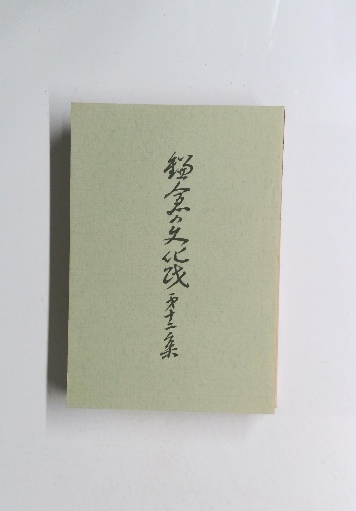 鎌倉の文化財 第十二集